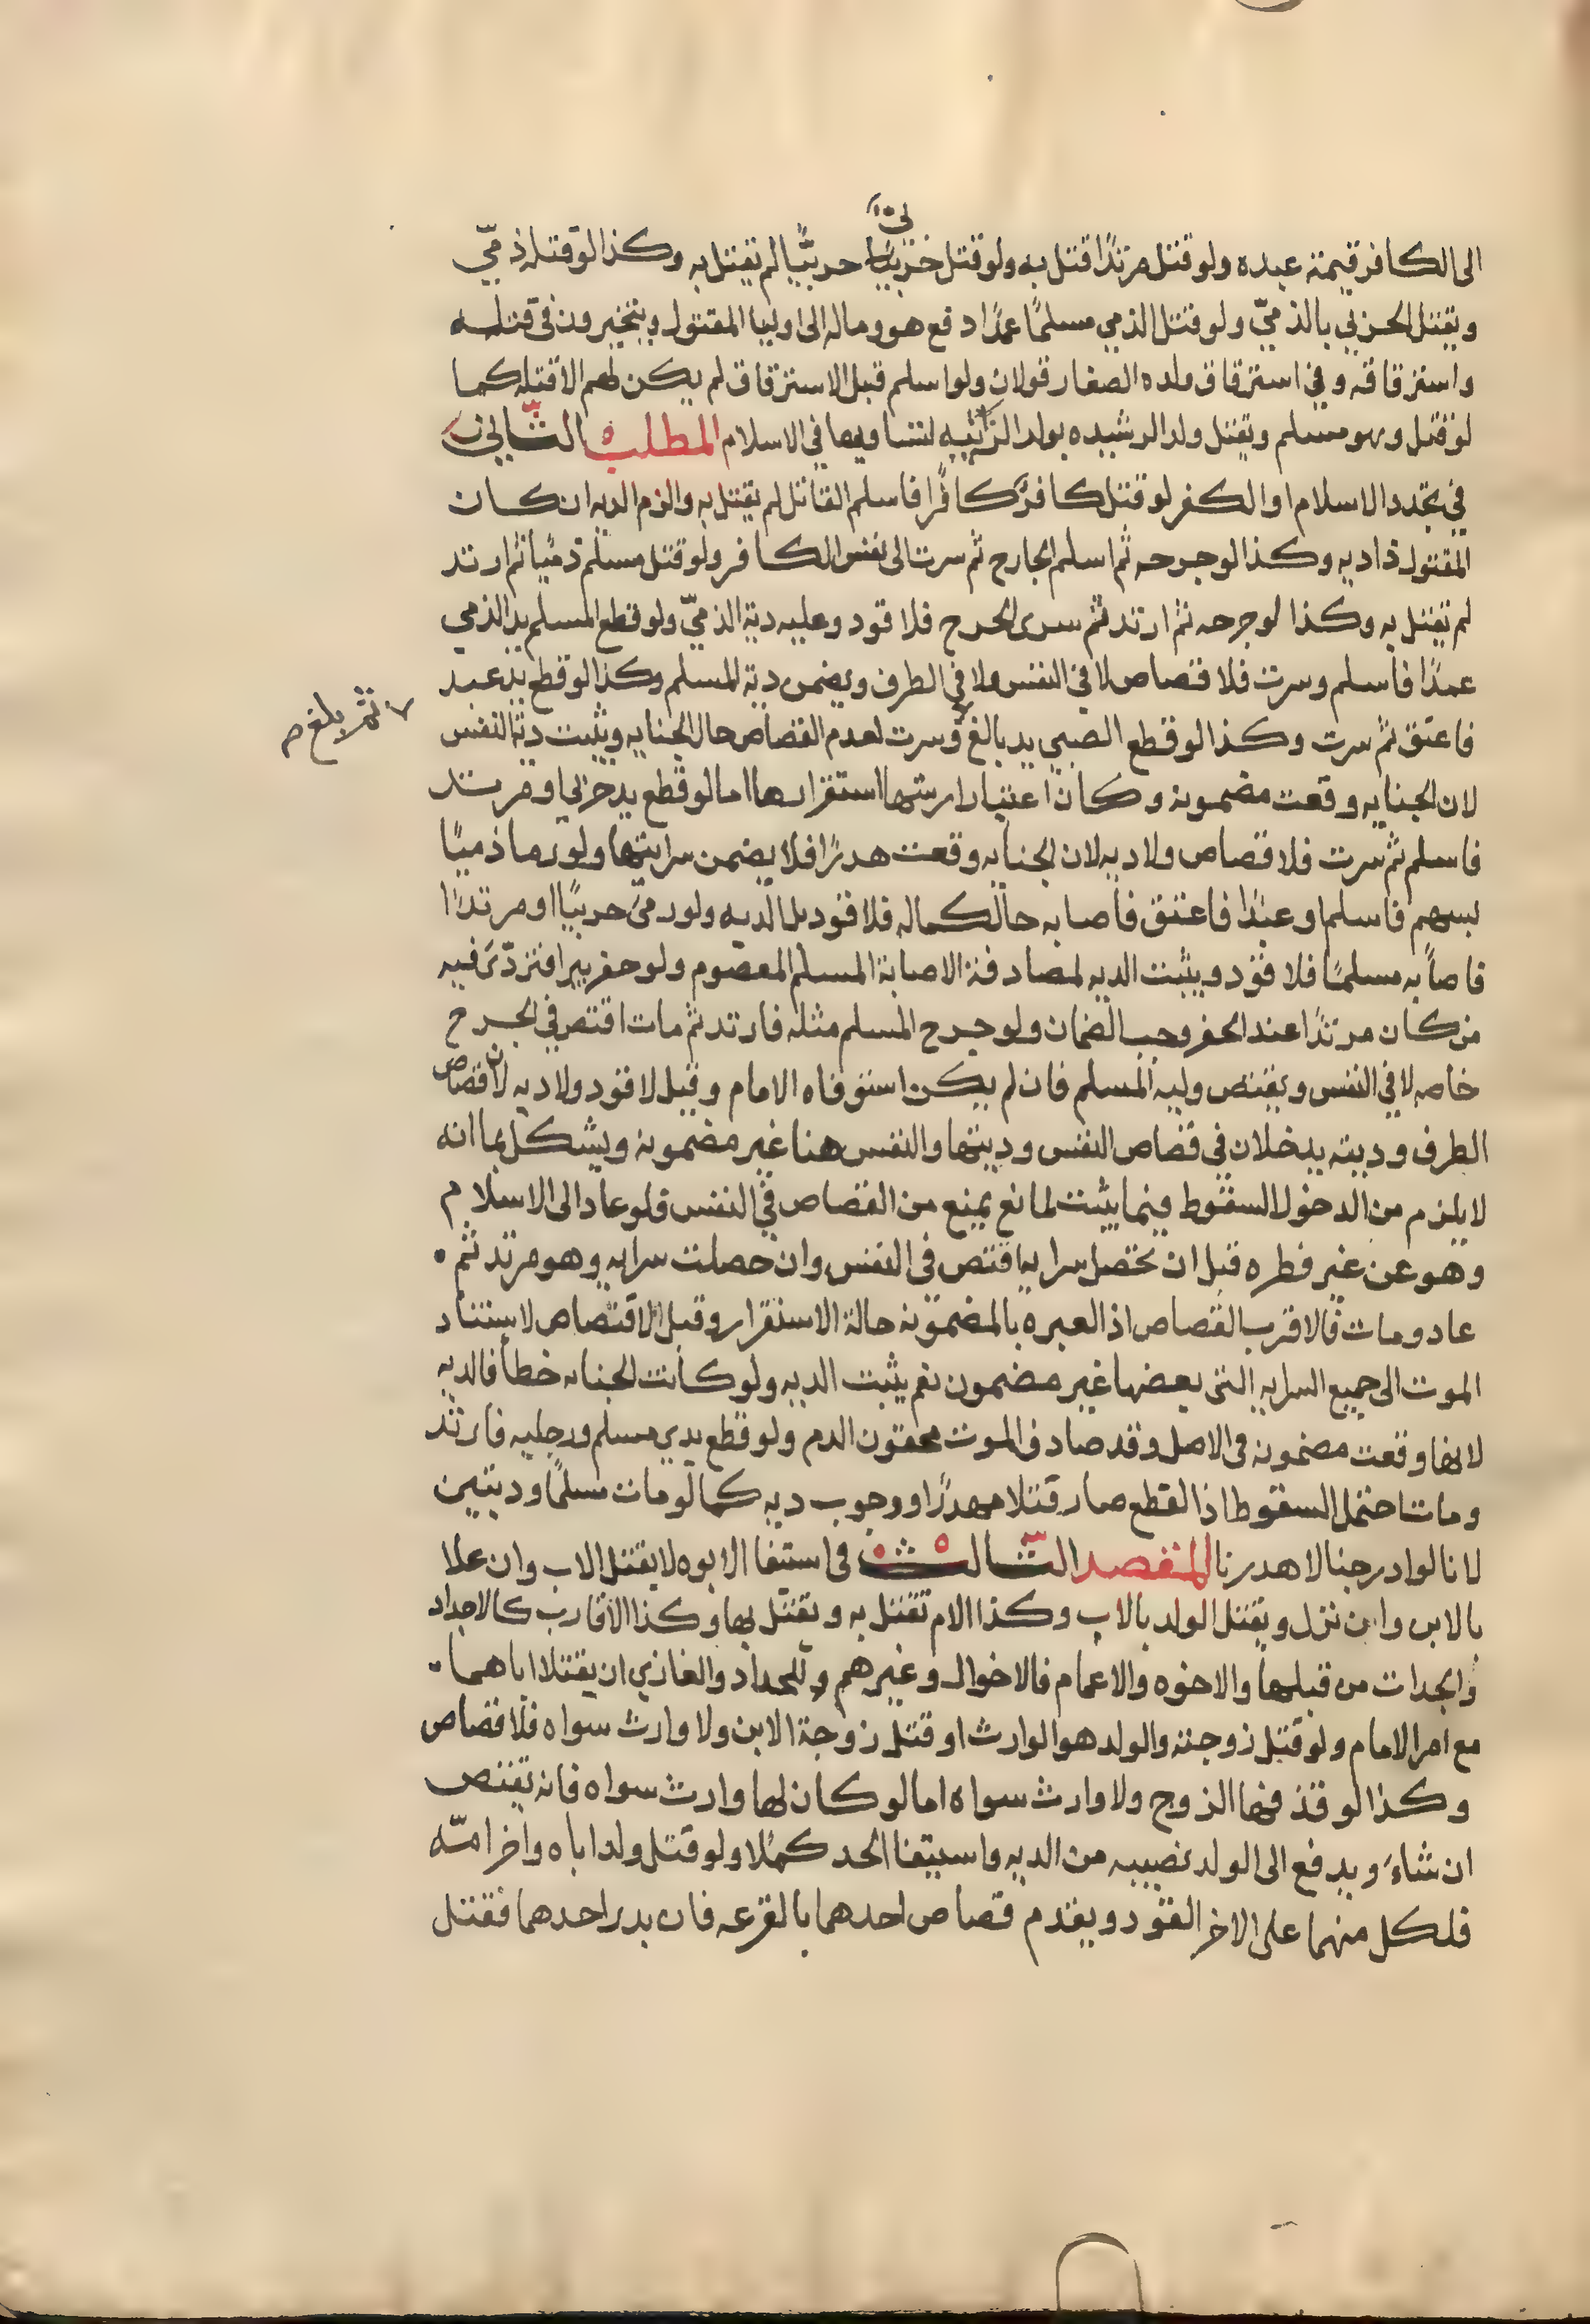 الى الكافر قيمة عبده ولو قتل مرتدًا قتل به ولو قتل حربيًا حربيًا لم يقتل به وكذا لو قتله ذميّ
ويقتل الحربي بالذميّ ولو قتل الذمي مسلمًا عمدًا دفع هو وماله الى اوليا المقتول ويتخيرون في قتله
واسترقاقه وفي استرقاق ولده الصغار قولان ولو اسلم قبل الاسترقاق لم يكن لهم الا قتله كما
لو قتل وهو مسلم ويقتل ولد الرشيده بولد الزنيه لتساويهما في الاسلام المطلب الثاني
في تجدد الاسلام او الكفر لو قتل كافرٌ كافرًا فاسلم القاتل لم يقتل به والزم الديه ان كان
المقتول ذا ديه وكذا لو جرحه ثم اسلم الجارح ثم سرت الى نفس الكافر ولو قتل مسلم ذميًا ثم ارتد
لم يقتل به وكذا لو جرحه ثم ارتد ثم سرى الجرح فلا قود وعليه دية الذميّ ولو قطع المسلم يد الذمي
عمدًا فاسلم وسرت فلا قصاص لا في النفس ولا في الطرف ويضمن دية المسلم وكذا لو قطع يد عبد
فاعتق ثم سرت وكذا لو قطع الصبي يد بالغ وسرت لعدم القصاص حال الجنايه ويثبت دية النفس
ثم بلغ م
لان الجنايه وقعت مضمونة وكان اعتبار ارشها استقرارها اما لو قطع يد حربي او مرتد
فاسلم ثم سرت فلا قصاص ولا ديه لان الجنايه وقعت هدرًا فلا يضمن سرايتها ولو رما ذميًا
بسهم فاسلم او عبدًا فاعتق فاصابه حال كماله فلا قود بل الديه ولو رمى حربيًا او مرتدًا
فاصابه مسلمًا فلا قود ويثبت الديه لمصادفة الاصابة المسلم المعصوم ولو حفر بيرا فتردّى فيه
من كان مرتدًا عند الحفر وجب الضمان ولو جرح المسلم مثله فارتد ثم مات اقتص في الجرح
خاصه لا في النفس ويقتص وليه المسلم فان لم يكن استوفاه الامام وقيل لا قود ولا ديه لان قصاص
الطرف وديته يدخلان في قصاص النفس وديتها والنفس هنا غير مضمونة ويشكل بما انه
لا يلزم من الدخول السقوط فيما يثبت لمانع يمنع من القصاص في النفس فلو عاد الى الاسلام
وهو عن غير فطره قبل ان تحصل سرايه اقتص في النفس وان حصلت سرايه وهو مرتد ثم
عاد ومات فالاقرب القصاص اذ العبره بالمضمونة حالة الاستقرار وقيل لا قصاص لاستناد
الموت الى جميع السرايه التي بعضها غير مضمون نعم يثبت الديه ولو كانت الجنايه خطأ فالديه
لانها وقعت مضمونة في الاصل وقد صادف الموت محقون الدم ولو قطع يدي مسلم ورجليه فارتد
ومات احتمل السقوط اذ القطع صار قتلا مهدرًا ووجوب ديه كما لو مات مسلمًا وديتين
لانا لو ادرجنا لاهدرنا المقصد الثالث في استيفا الابوه لا يقتل الاب وان علا
بالابن وان نزل ويقتل الولد بالاب وكذا الام تقتل به ويقتل بها وكذا الاقارب كالاجداد
والجدات من قبلها والاخوه والاعمام فالاخوال وغيرهم وللجداد والغازي ان يقتلا اباهما
مع امر الامام ولو قتل زوجته والولد هو الوارث او قتل زوجة الابن ولا وارث سواه فلا قصاص
وكذا لو قذفها الزوج ولا وارث سواه اما لو كان لها وارث سواه فانه يقتص
ان شاء ويدفع الى الولد نصيبه من الديه واستيفا الحد كملا ولو قتل ولد اباه واخر امّه
فلكل منهما على الاخر القود ويقدم قصاص احدهما بالقرعه فان بدر احدهما فقتل